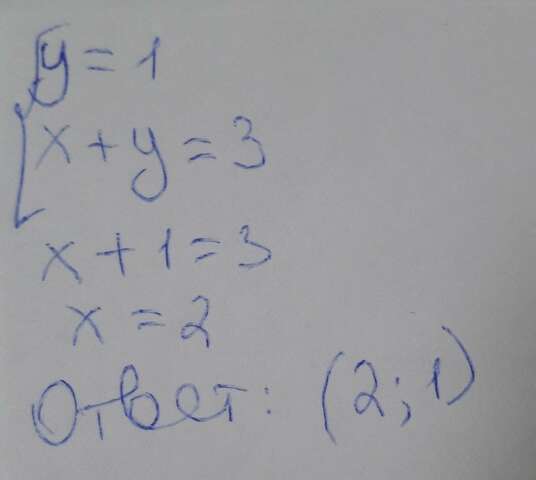 y = 1
x + y = 3
x + 1 = 3
x = 2
Ответ: (2; 1)